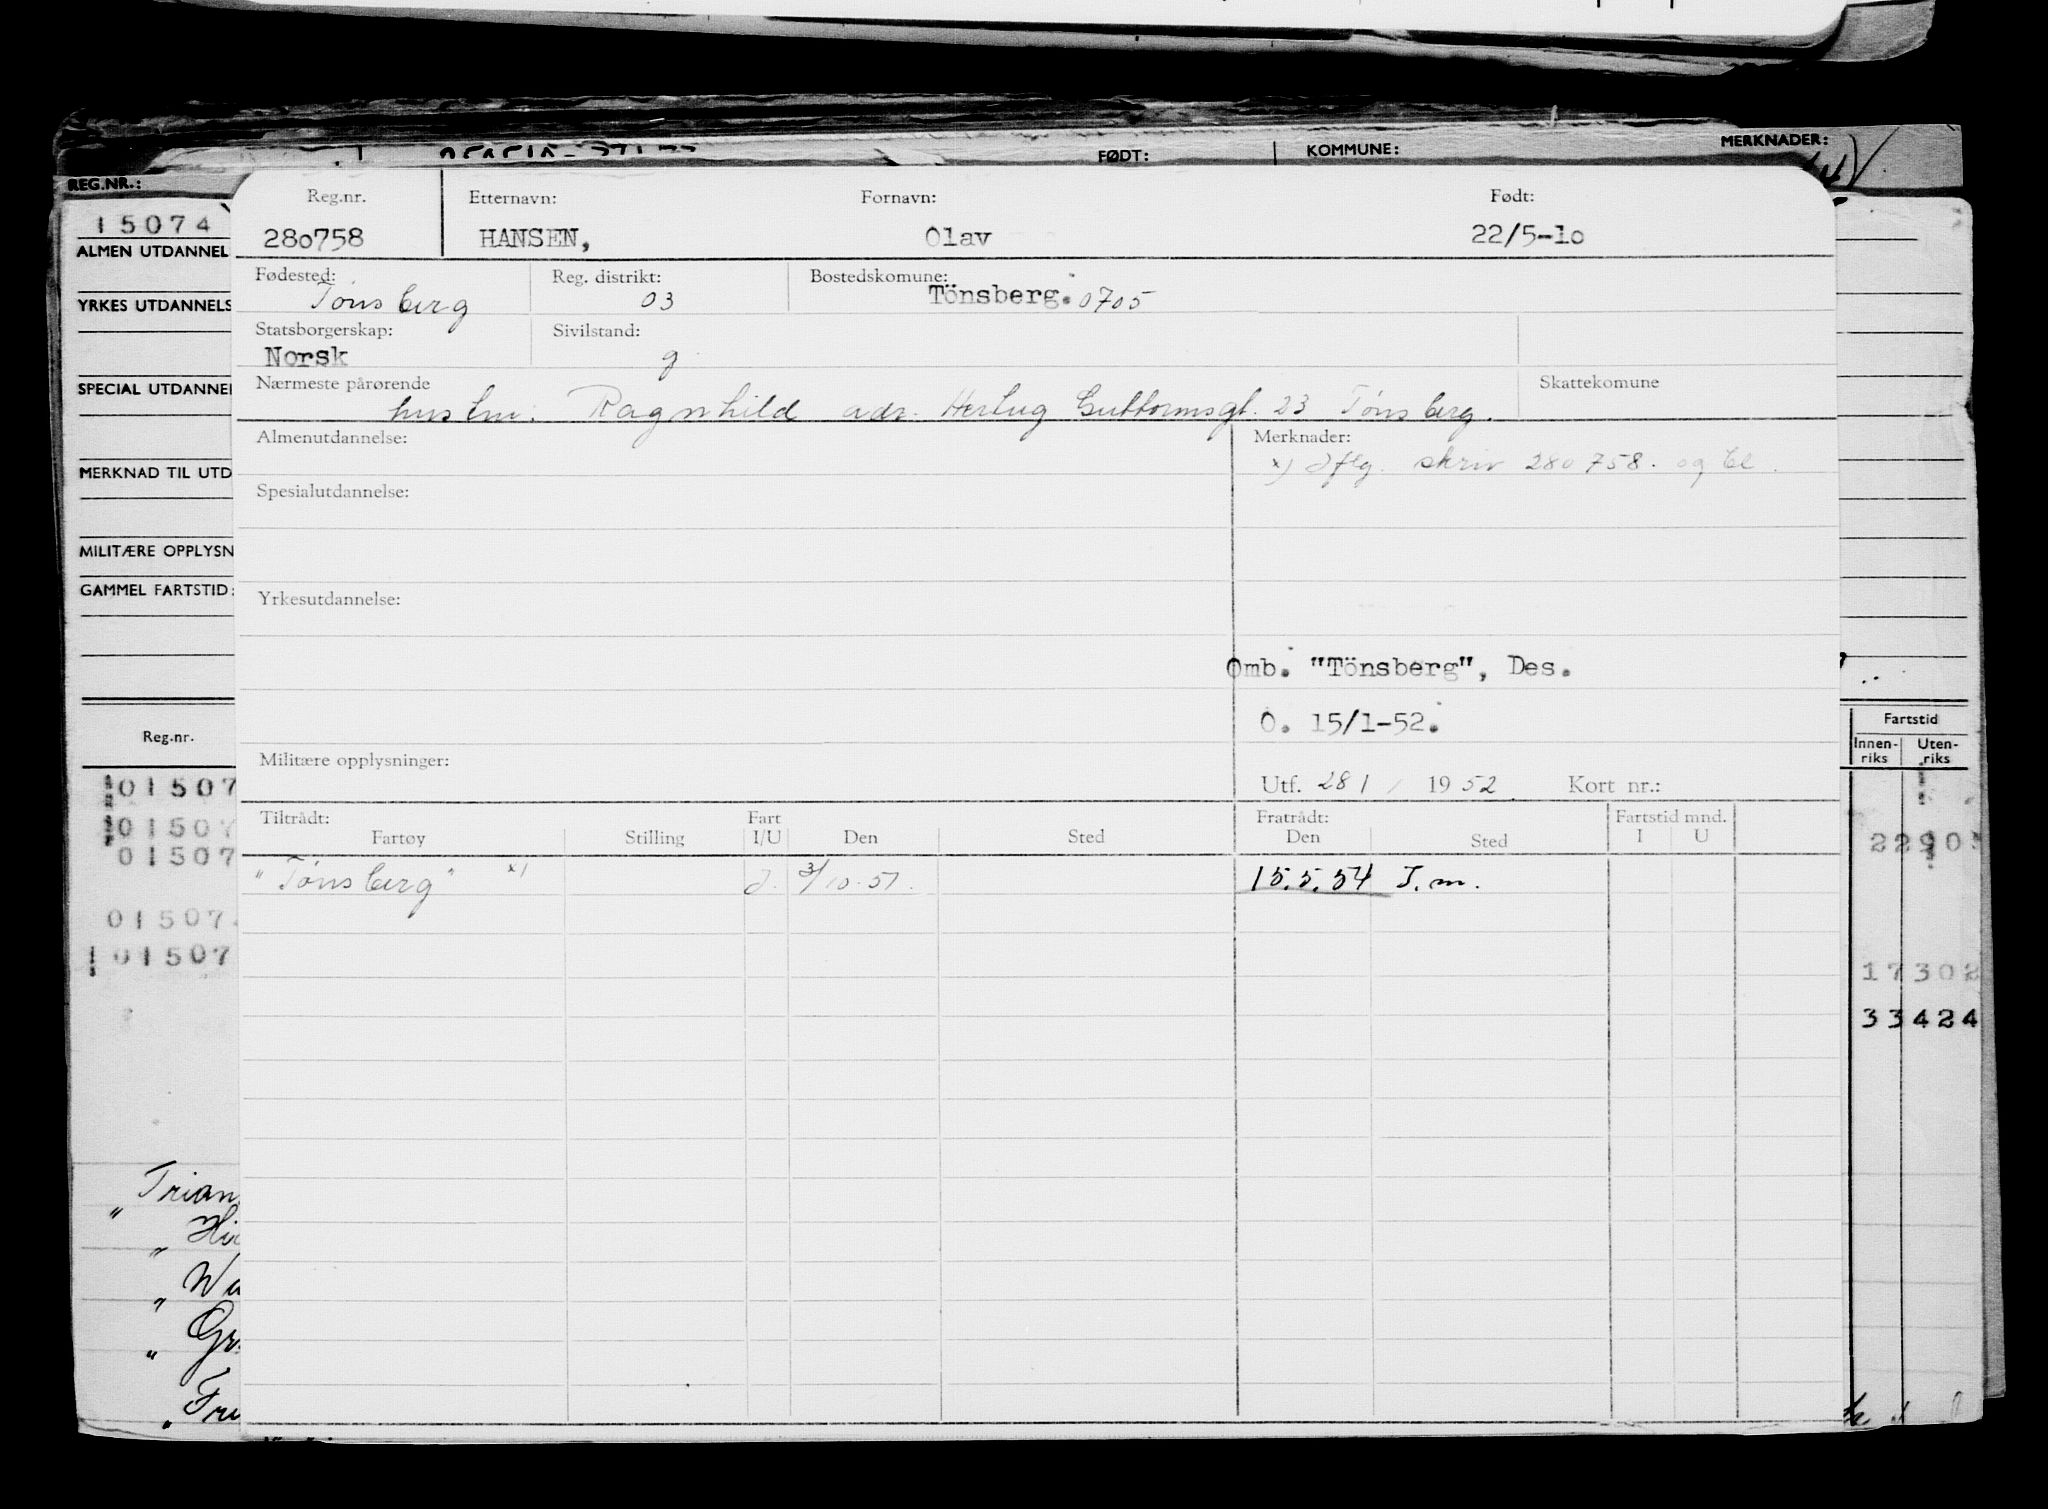 FØDT:
KOMMUNE:
MERKNADER:
REG.NR.:
15074
ALMEN UTDANNEL
YRKES UTDANNELS
SPECIAL UTDANNEL
MERKNAD TIL UTD
MILITÆRE OPPLYSN
GAMMEL FARTSTID:
Reg.nr.
01507
01507
01507
01507
01507
Trian
" Hi
" Wa
" Gr
" Fri
Reg.nr. Etternavn: Fornavn: Født:
280758 HANSEN, Olav 22/5-10
Fødested: Reg. distrikt: Bostedskomune:
Tønsberg 03 Tönsberg. 0705
Statsborgerskap: Sivilstand:
Norsk g
Nærmeste pårørende Skattekomune
hustru: Ragnhild adr. Hertug Guttormsgt. 23 Tønsberg.
Almenutdannelse: Merknader:
x) Iflg. skriv 280758. og tl.
Spesialutdannelse:
Yrkesutdannelse:
Omb. "Tönsberg", Des.
O. 15/1-52.
Militære opplysninger:
Utf. 28/1 1952 Kort nr.:
Tiltrådt: Fart Fratrådt: Fartstid mnd.
Fartøy Stilling I/U Den Sted Den Sted I U
"Tønsberg" x) I. 3/10.51. 15.5.54 T.m.
Fartstid
Innen-riks Uten-riks
22903
17302
33424